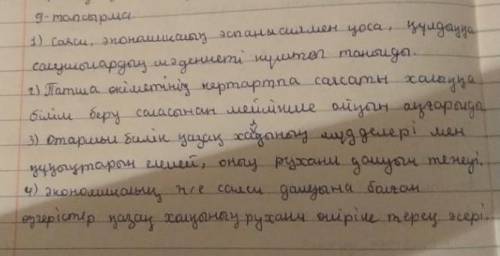 9-тапсырма
1) саяси, экономикалық экспансиямен қоса, құлдыққа
салушылардың мәдениеті күштеп танылды.
2) Патша өкіметінің кертартпа саясаты халыққа
білім беру саласынан мейлінше айқын аңғарылды
3) Отаршыл билік қазақ халқының мүдделері мен
құқықтарын елемей, оның рухани дамуын тежеді.
4) экономикалық н/е саяси дамуына болған
өзгерістер қазақ халқының рухани өміріне терең әсері.